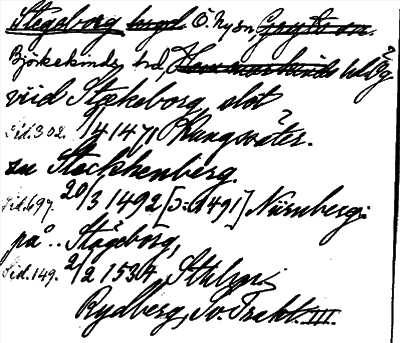 Stegeborg Ö. Ny sn
Björkekinds hd, ÖLg
viid Stekeborg, slot
Sid. 302. 1/4 1471 Kungssäter.
zu Steckhenberg.
Sid. 697. 20/3 1492 [ɔ: 1491] Nürnberg.
på .. Stägeborg,
Sid. 149. 2/2 1534, Sthlm;
Rydberg, Sv. Trakt. III.